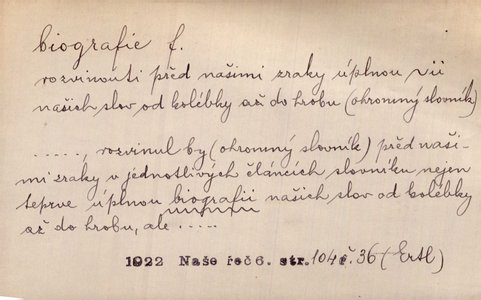 biografie f.
rozvinouti před našimi zraky úplnou
našich slov od kolébky až do hrobu (ohromný slovník)
....., rozvinul by (ohromný slovník) před naši-
mi zraky v jednotlivých článcích slovníku nejen
teprve úplnou biografii našich slov od kolébky
až do hrobu, ale .....
1922 Naše řeč 6. str. 104 ř. 36 (Ertl)